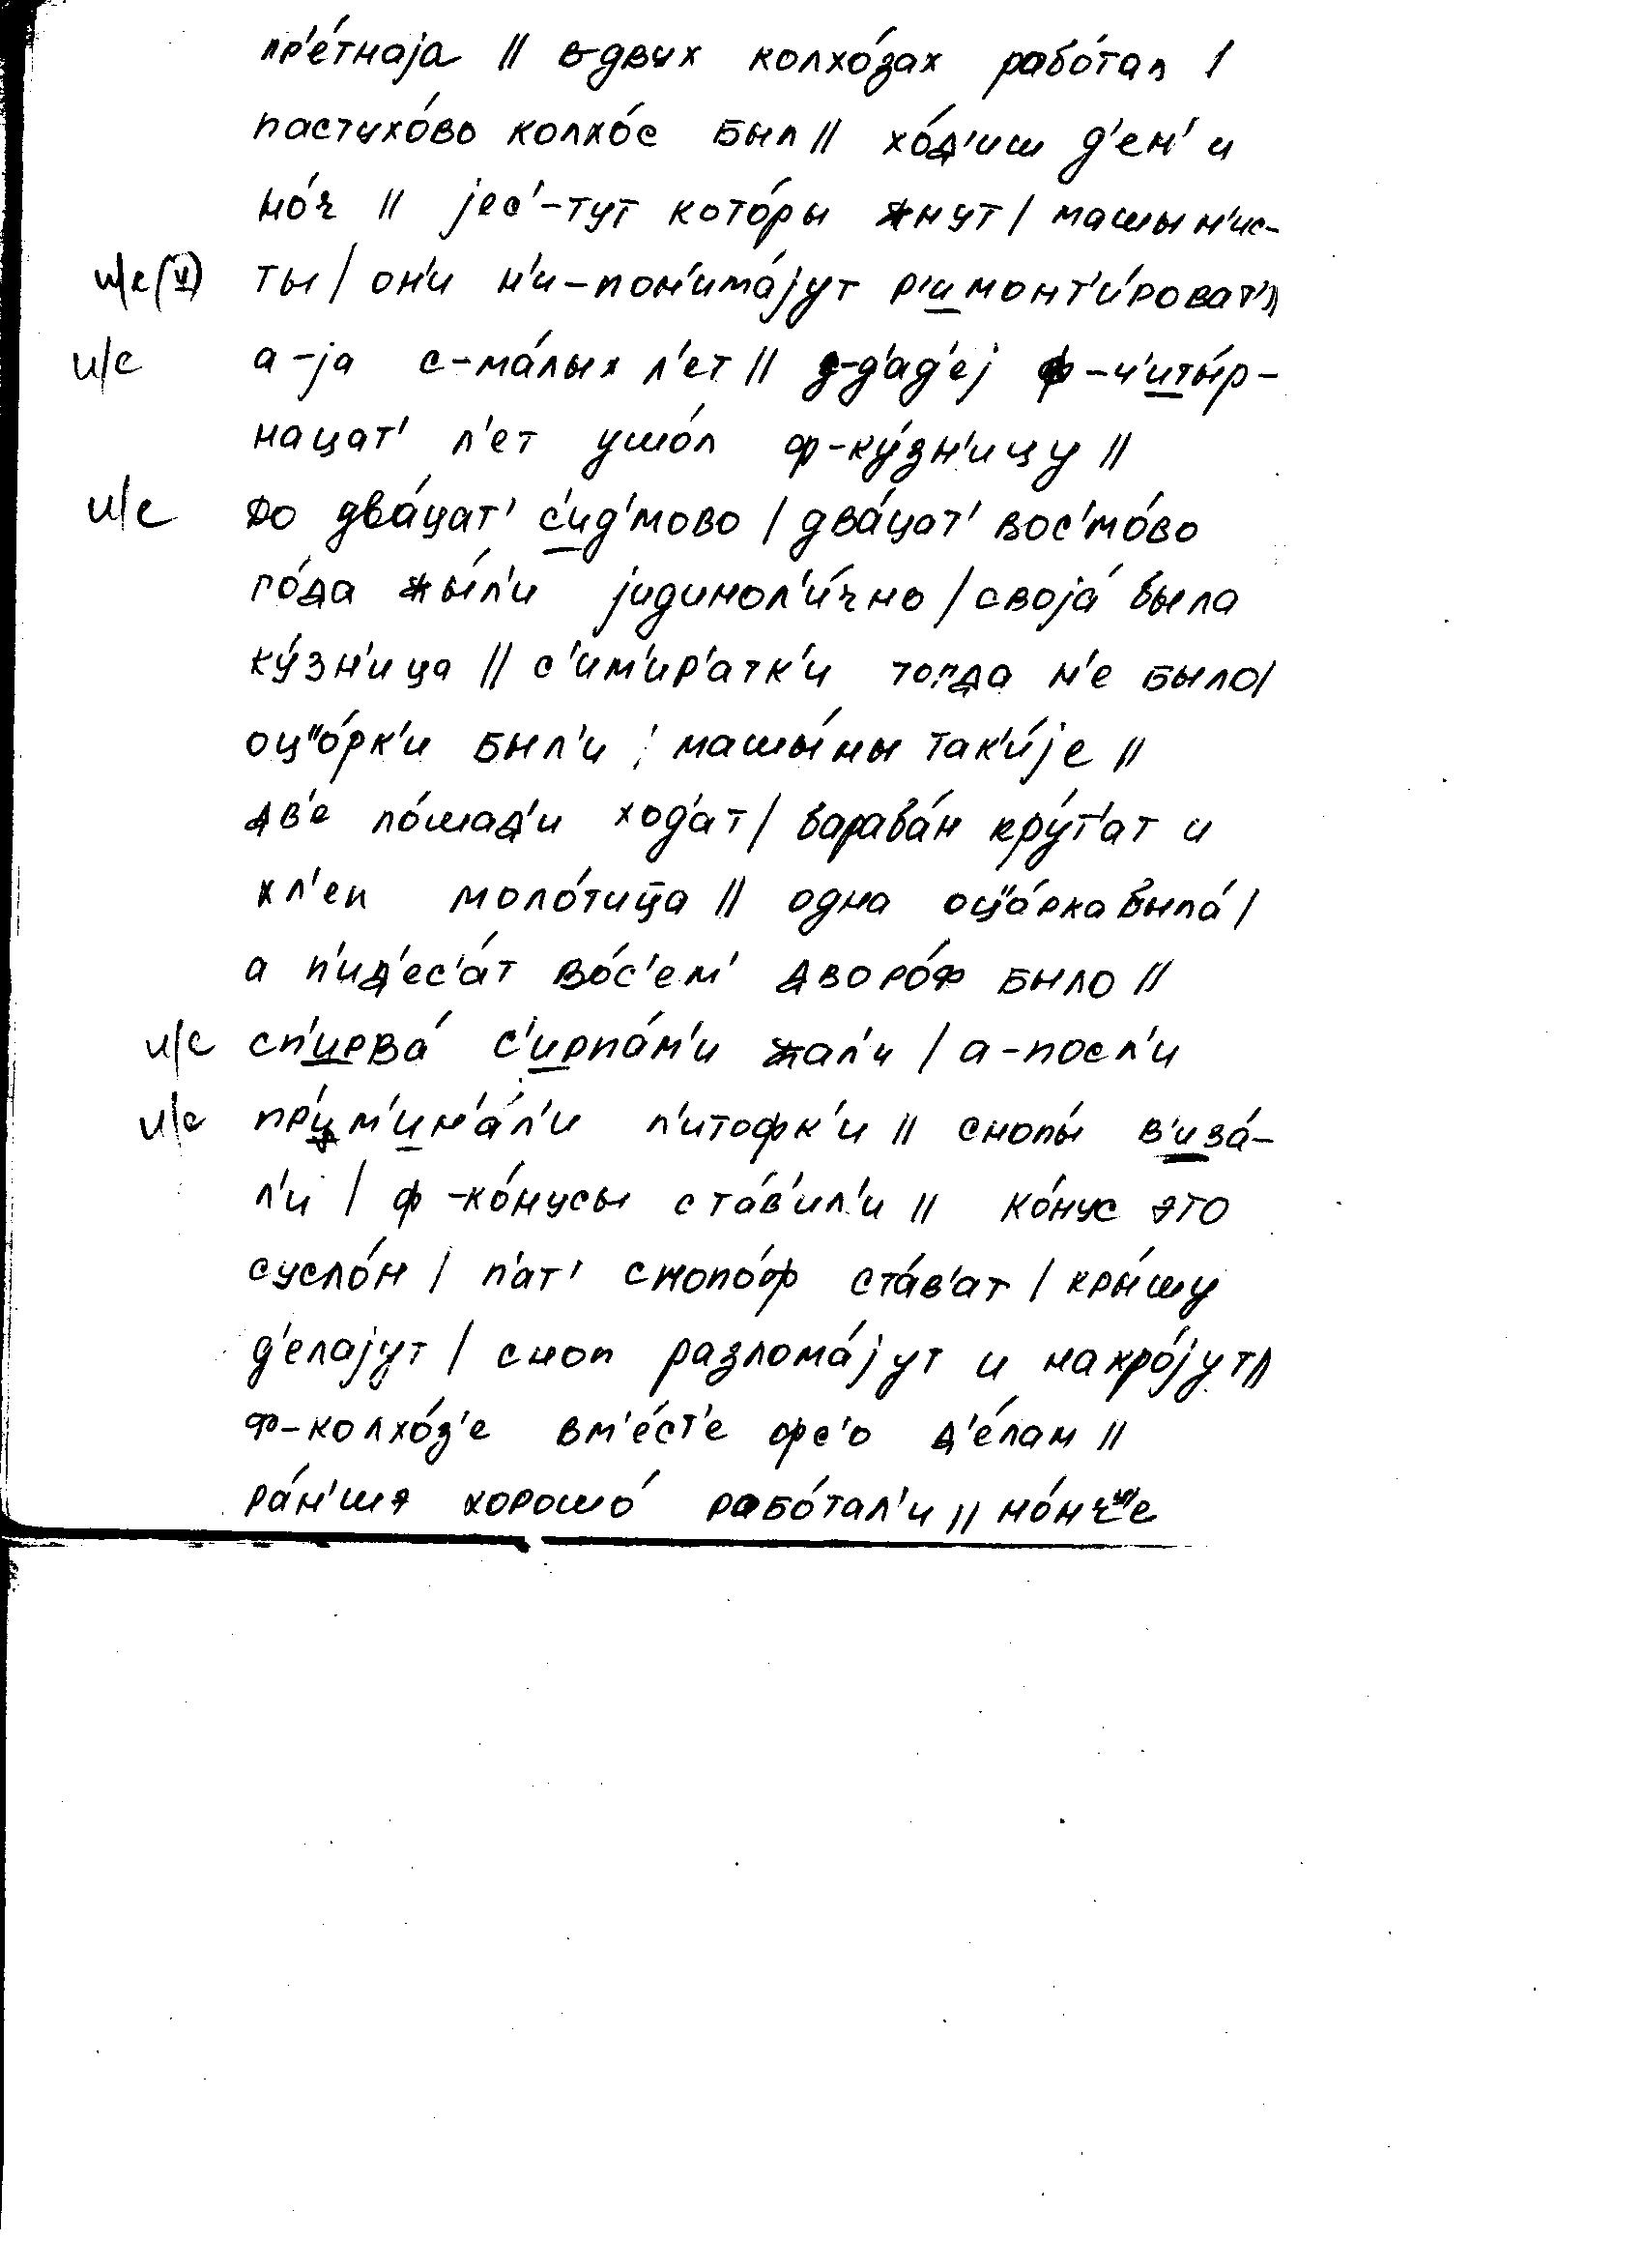 пр'е́тнаја || в-двих колхо́зах рабо́тал /
пастухо́во колхо́с был || хо́д'иш д'ен' и
но́ч || јес'-тут кото́ры жнут / машын'ис-
и/е (V) ты / он'и н'и-пон'има́јут р'имонт'и́роват' ||
и/е а-ја с-ма́лых л'ет || д-д'ад'еј ф-ч'иты́р-
нацат' л'ет ушо́л ф-ку́зн'ицу ||
и/е до два́цат' с'ид'мово / два́цат' вос'мо́во
го́да жы́л'и јидинол'и́чно / своја́ была
ку́зн'ица || с'им'ир'атк'и тогда н'е было /
оц"о́рк'и был'и / машы́ны так'и́је ||
дв'е ло́шад'и ход'ат / бараба́н кру́т'ат и
хл'еп моло́тица || одна оц"о́рка была́ /
а п'ид'ес'а́т во́с'ем' дворо́ф было ||
и/е сп'ирва́ с'ирпа́м'и жал'и / а-посл'и
и/е пр'им'ин'а́л'и л'итофк'и || снопы́ в'иза́-
л'и / ф-ко́нусы ста́в'ил'и || ко́нус это
сусло́н / п'ат' снопо́ф ста́в'ат / кры́шу
д'елајут / сноп разлома́јут и накро́јут ||
ф-колхо́з'е вм'е́ст'е фс'о д'е́лам ||
ра́н'шэ хорошо́ рабо́тал'и || но́нч"е